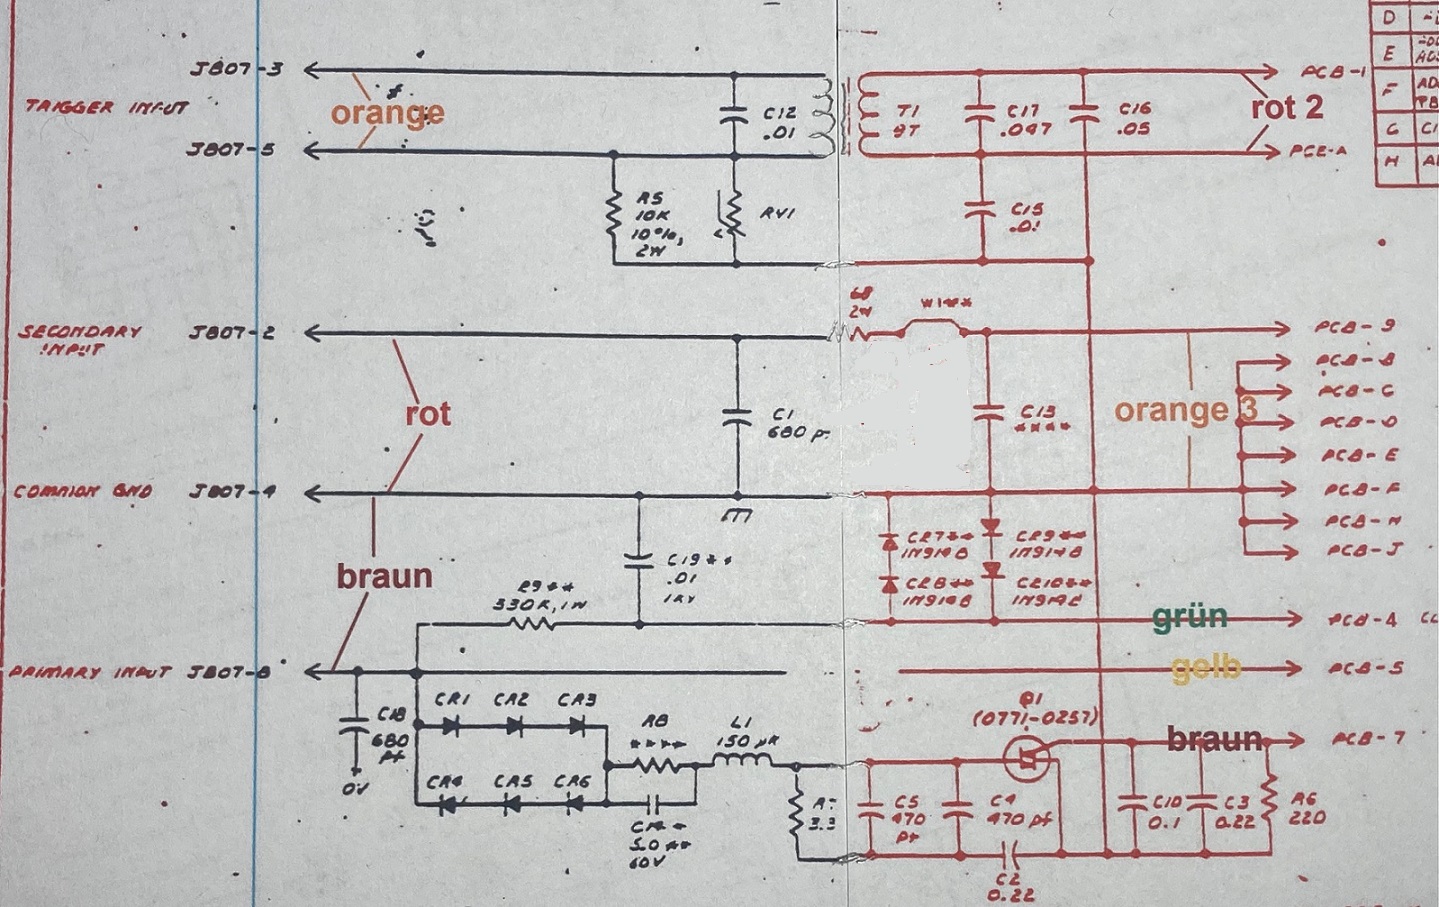 D
E
F
G
H
J807-3
TRIGGER INPUT
orange
J807-5
C12
.01
T1
9T
C17
.047
C16
.05
PCB-1
rot 2
R5
10K
10%,
2W
RV1
C15
.01
SECONDARY
INPUT
J807-2
68
2W
W1**
PCB-9
PCB-B
PCB-C
PCB-D
PCB-E
PCB-F
PCB-H
PCB-J
rot
C1
680
C13
****
orange 3
COMMON GND
J807-4
braun
R9**
330K, 1W
C19**
.01
1KV
CR7**
1N914B
CR8**
1N914B
CR9**
1N914B
CR10**
grün
PCB-4
PRIMARY INPUT
J807-6
gelb
PCB-5
C18
680
pf
0V
CR1
CR2
CR3
CR4
CR5
CR6
R8
****
L1
150
Q1
(0771-0257)
braun
PCB-7
5.0**
60V
3.3
C5
470
pf
C4
470 pf
C2
0.22
C10
0.1
C3
0.22
R6
220